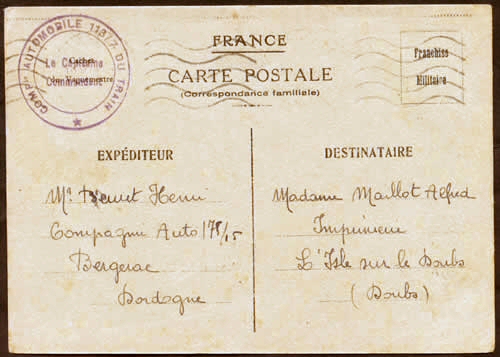 COMPie AUTOMOBILE DU TRAIN
Cachet
Le Capitaine
du Vaguemestre
Commandant
FRANCE
CARTE POSTALE
(Correspondance familiale)
Franchise
Militaire
EXPÉDITEUR
Mr Henri
Compagnie Auto
Bergerac
Dordogne
DESTINATAIRE
Madame Maillot Alfred
Imprimeur
L'Isle sur le Doubs
(Doubs)